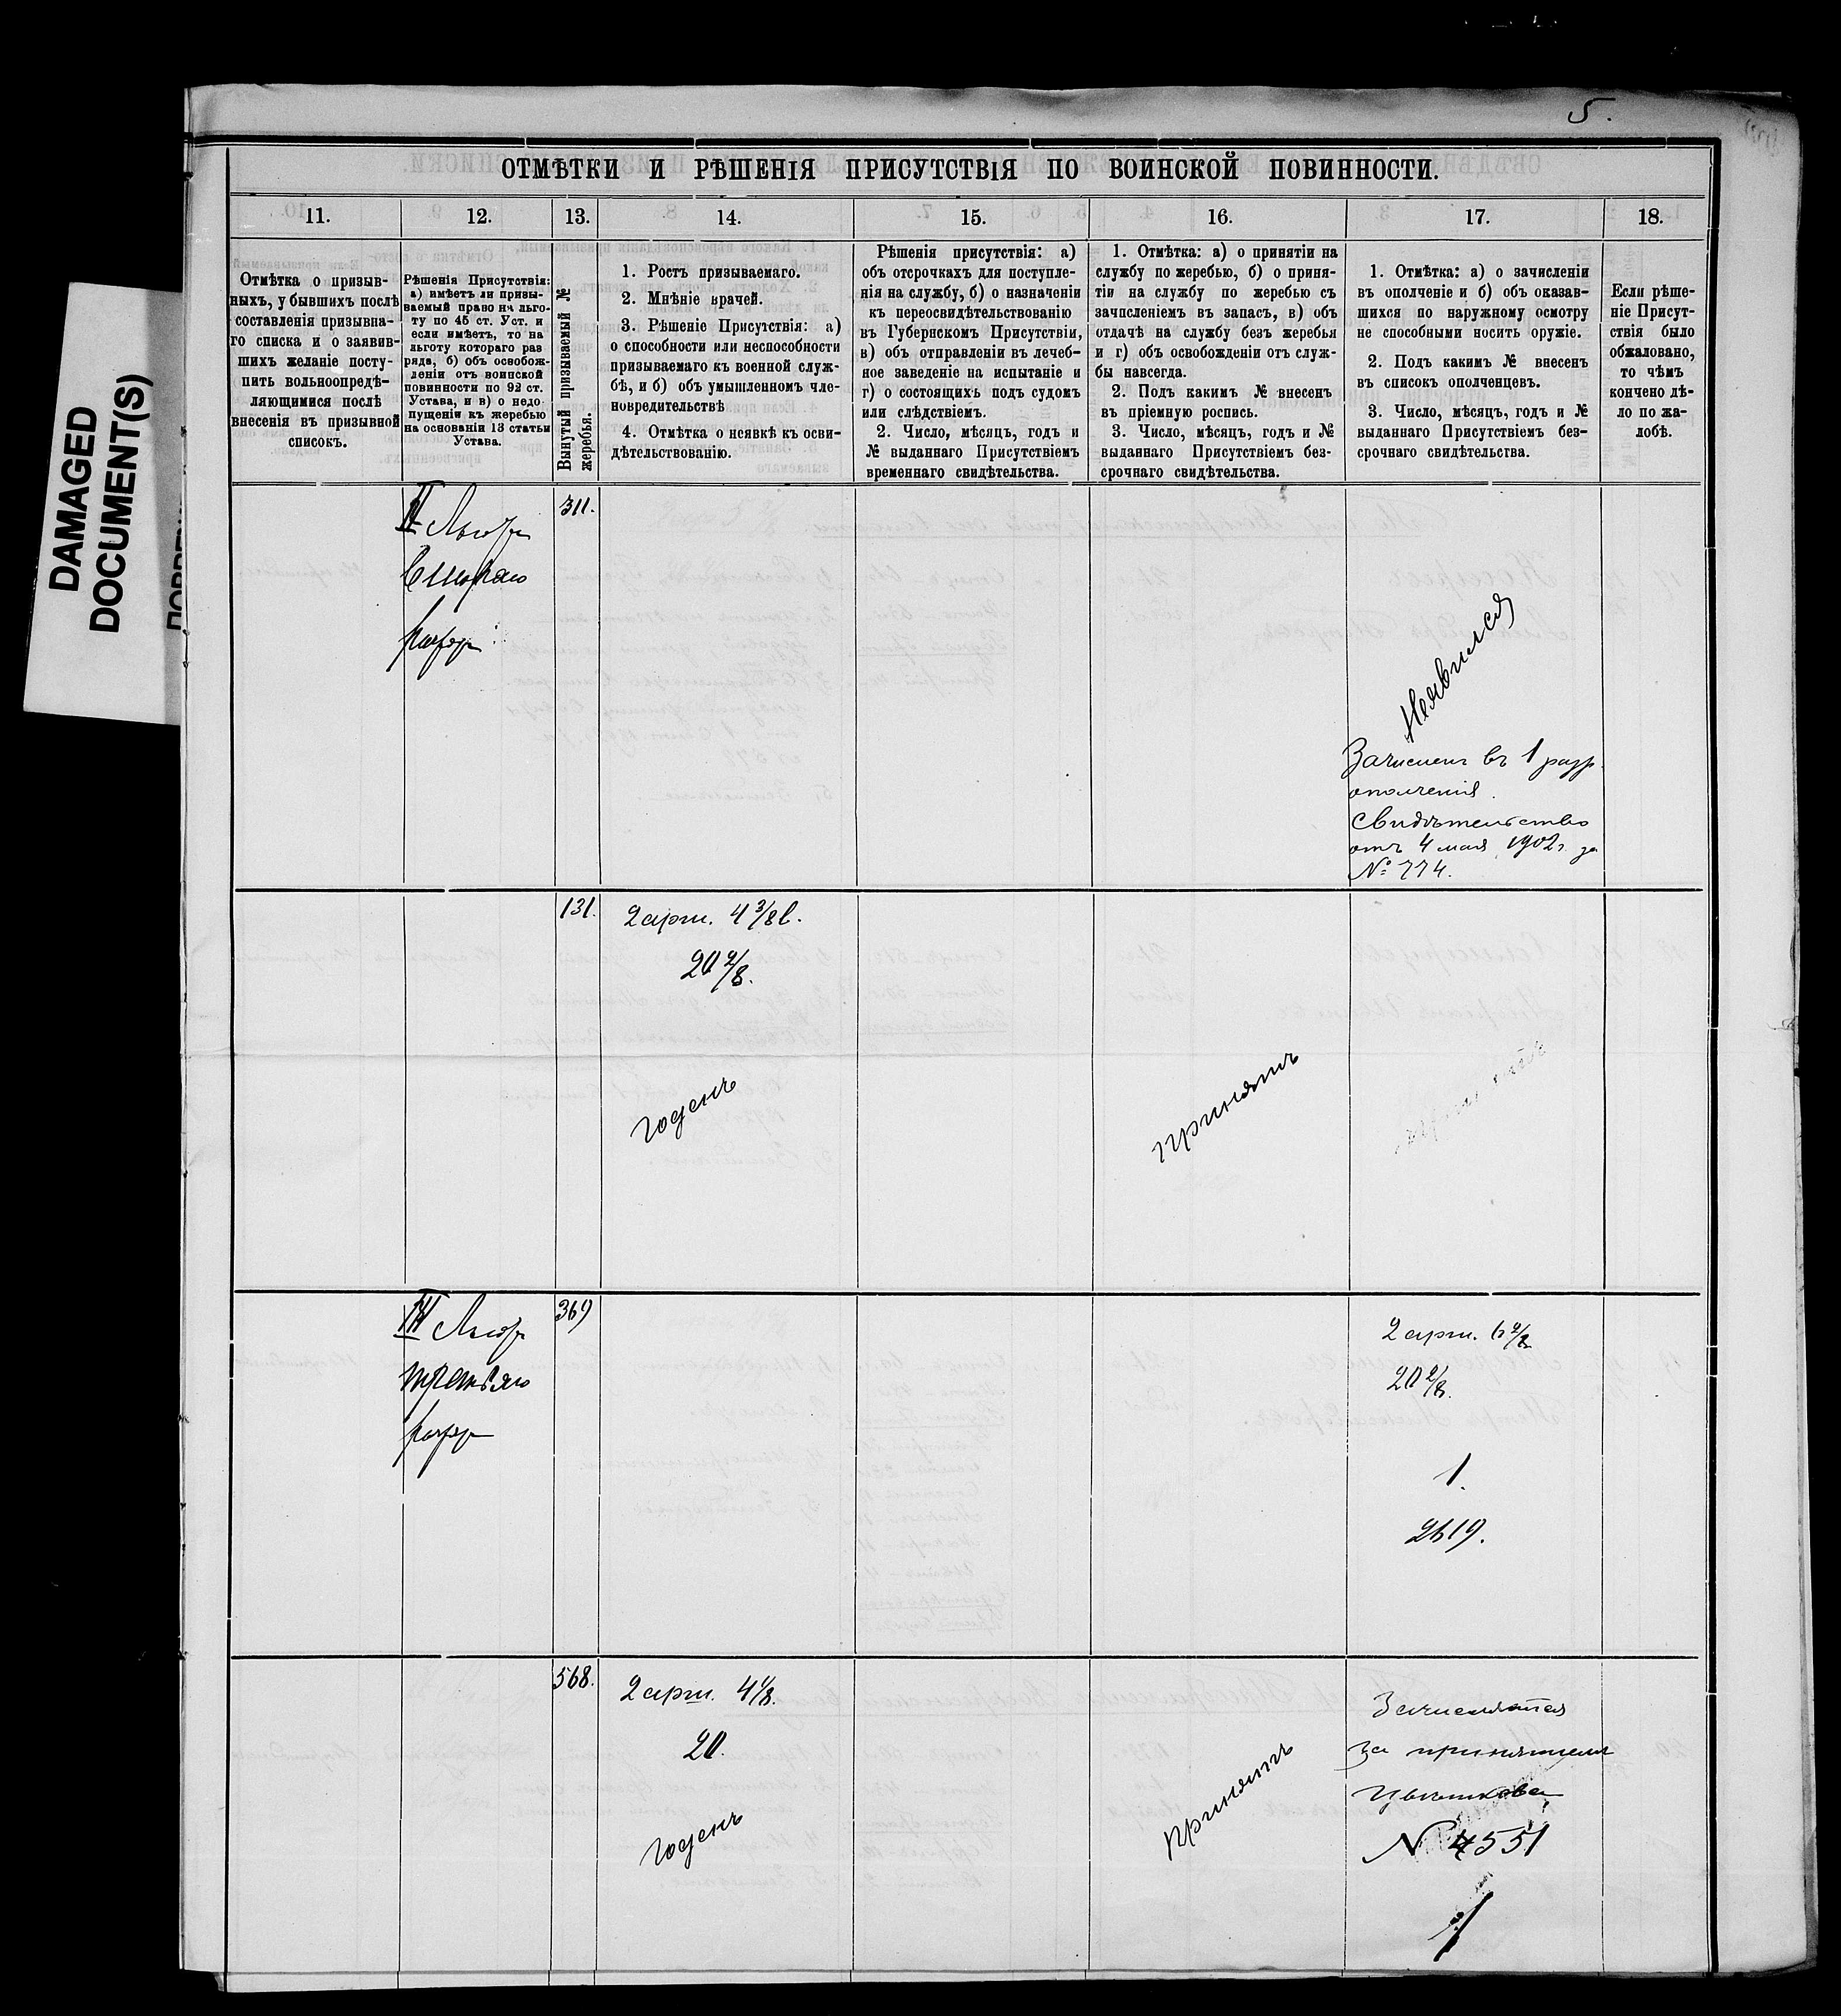 5.
DAMAGED
DOCUMENT(S)
ОТМѢТКИ И РѢШЕНІЯ ПРИСУТСТВІЯ ПО ВОИНСКОЙ ПОВИННОСТИ.
11.
12.
13.
14.
15.
16.
17.
18.
Отмѣтка о призыв-
ныхъ, у бывшихъ послѣ
составленія призывна-
го списка и о заявив-
шихъ желаніе посту-
пить вольноопредѣ-
ляющимися послѣ
внесенія въ призывной
списокъ.
Рѣшенія Присутствія:
а) имѣетъ ли призы-
ваемый право на льго-
ту по 45 ст. Уст. и
если имѣетъ, то на
льготу котораго раз
ряда, б) объ освобож-
деніи отъ воинской
повинности по 92 ст.
Устава, и в) о недо-
пущеніи къ жеребью
на основаніи 13 статьи
Устава.
Вынутый призываемый №
жеребья.
1. Ростъ призываемаго.
2. Мнѣніе врачей.
3. Рѣшеніе Присутствія: а)
о способности или неспособности
призываемаго къ военной служ-
бѣ, и б) объ умышленномъ чле-
новредительствѣ
4. Отмѣтка о неявкѣ къ осви-
дѣтельствованію.
Рѣшенія присутствія: а)
объ отсрочкахъ для поступле-
нія на службу, б) о назначеніи
къ переосвидѣтельствованію
въ Губернскомъ Присутствіи,
в) объ отправленіи въ лечеб-
ное заведеніе на испытаніе и
г) о состоящихъ подъ судомъ
или слѣдствіемъ.
2. Число, мѣсяцъ, годъ и
№ выданнаго Присутствіемъ
временнаго свидѣтельства.
1. Отмѣтка: а) о принятіи на
службу по жеребью, б) о приня-
тіи на службу по жеребью съ
зачисленіемъ въ запасъ, в) объ
отдачѣ на службу безъ жеребья
и г) объ освобожденіи отъ служ-
бы навсегда.
2. Подъ какимъ № внесенъ
въ пріемную роспись.
3. Число, мѣсяцъ, годъ и №
выданнаго Присутствіемъ без-
срочнаго свидѣтельства.
1. Отмѣтка: а) о зачисленіи
въ ополченіе и б) объ оказав-
шихся по наружному осмотру
не способными носить оружіе.
2. Подъ какимъ № внесенъ
въ списокъ ополченцевъ.
3. Число, мѣсяцъ, годъ и №
выданнаго Присутствіемъ без-
срочнаго свидѣтельства.
Если рѣше-
ніе Присут-
ствія было
обжаловано,
то чѣмъ
кончено дѣ-
ло по жа-
лобѣ.
II Льгот
втораго
разр
311.
Неявился
Зачислен въ 1 разр.
ополченія.
Свидѣтельство
отъ 4 мая 1902 г. за
№ 774.
131.
2 арш. 4 3/8 в.
20 2/8.
годенъ
принятъ
III Льгот
третьяго
разр
369
2 арш. 6 2/8
20 2/8.
1.
2619.
568.
2 арш. 4 1/8.
20.
годенъ
принятъ
Зачисляется
за принятіемъ
Цвѣткова
№ 4551
1